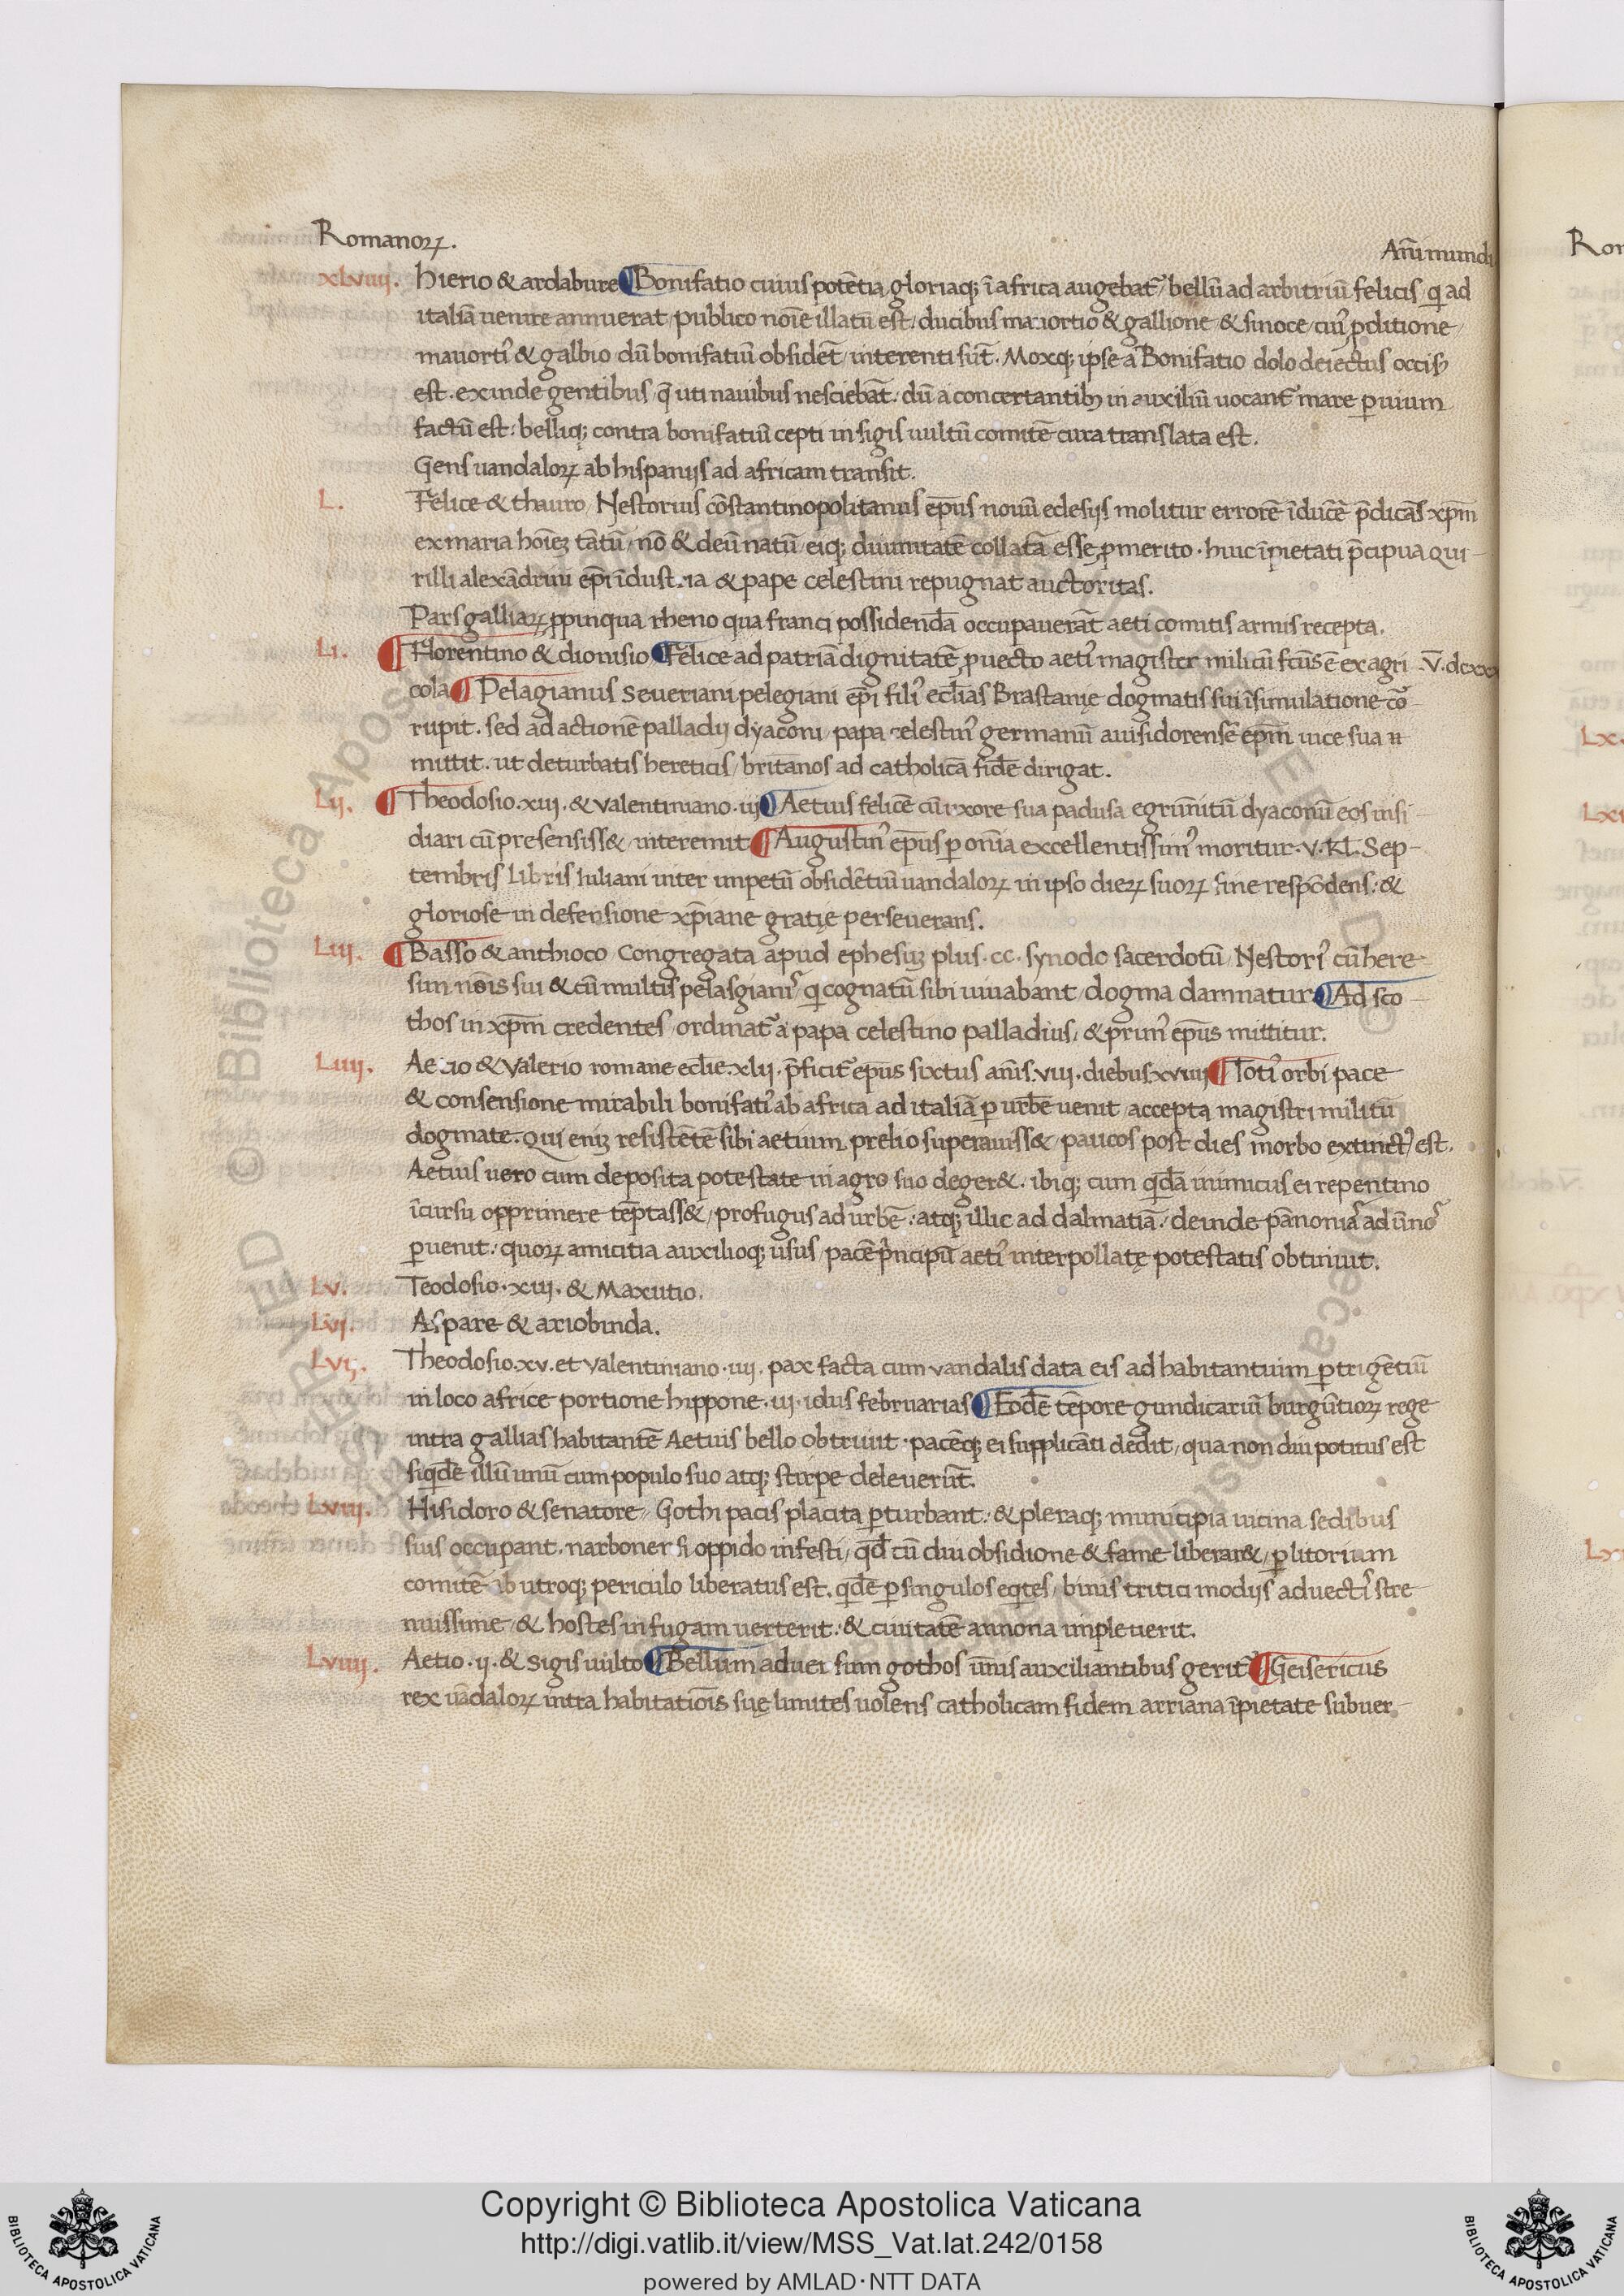 Romanoꝝ.
An̄i mundi
xlviiij. Hierio & ardabure ¶ Bonifatio cuius potētia gloriaq; ī africa augebat᷑ / bellū ad arbitriū felicis / q̇ ad
italiā uenire annuerat / publico noīe illatū est / ducibus mauortio & gallione / & sinoce / cuiꝰ ꝓditione /
mauortiꝰ & galbio dū bonifatiū obsidēt / interenti sūt. Moxq; ipse a Bonifatio dolo deiectus occisꝰ
est. exinde gentibus / q̄ uti nauibus nesciebāt. / dū a concertantibꝫ in auxiliū uocant᷑ mare ꝑuium
factū est. / belliq; contra bonifatiū cepti in sigis uultū comitē cura translata est.
Gens uandaloꝝ ab hispanijs ad africam transit.
L. Felice & thauro / Nestorius cōstantinopolitanus ep̄us nouū eclesijs molitur errorē īducē᷑ p̄dicās xp̄m
ex maria hoīeꝫ tātū / nō & deū natū / eiq; diuinitatē collatā esse ꝓ merito. huic īpietati p̄cipua qui-
rilli alexādrini ep̄i īdustria & pape celestini repugnat auctoritas.
Pars galliaꝝ ꝓpinqua rheno qua franci possidendā occupauerāt aeti comitis armis recepta.
Li. ¶ Florentino & dionisio ¶ Felice ad patriā dignitatē ꝓuecto aetiꝰ magister militū fc̄us ē ex agri
V̄. dcxxx
cola ¶ Pelagianus Seueriani pelegiani ep̄i filiꝰ ecl̄ias Brastanię dogmatis sui īsimulatione cō-
rupit. sed ad actionē palladij dyaconi / papa celestinꝰ germanū auisidorensē ep̄m uice sua
mittit. ut deturbatis hereticis / britanos ad catholicā fidē dirigat.
Lij. ¶ Theodosio. xiij. & valentiniano. iij ¶ Aetius felicē cū vxore sua padusa egrūnitū dyaconū eos insi-
diari cū presensiss& / interemit ¶ Augustinꝰ ep̄us ꝑ om̄ia excellentissimꝰ moritur. v. Kl. Sep-
tembris libris Iuliani inter impetū obsidētiū uandaloꝝ in ipso dieꝝ suoꝝ fine respōdens. / &
gloriose in defensione xp̄iane gratię perseuerans.
Liij. ¶ Basso & anthioco Congregata apud ephesuꝫ plus. cc. synodo sacerdotū / Nestoriꝰ cū here-
sim nōis sui & cū multis pelasgianiꝰ q̇ cognatū sibi iuuabant / dogma damnatur ¶ Ad sco-
thos in xp̄m credentes / ordinat᷑ a papa celestino palladius / & primꝰ ep̄us mittitur.
Liiij. Aetio & Valerio romane ecl̄ie. xlij. p̄ficit᷑ ep̄us sixtus an̄is. viij. diebus. xviiij ¶ Totiꝰ orbi pace
& consensione mirabili bonifatiꝰ ab africa ad italiā ꝑ urbē uenit / accepta magistri militū
dogmate. Qui eniꝫ resistētē sibi aetium prelio superauiss& / paucos post dies morbo extinctꝰ est.
Aetius uero cum deposita potestate in agro suo deger&. ibiq; cum q̇dā inimicus ei repentino
īcursu opprimere tēptass& / profugus ad urbē. / atq; illic ad dalmatiā. / deinde pānoniā ad ūnoꝰ
ꝑuenit. / quoꝝ amicitia auxilioq; usus / pacē pͥncipū aetiꝰ interpollatę potestatis obtinuit.
Lv. Teodosio. xiiij. & Maxutio.
Lvj. Aspare & ariobinda.
Lvij. Theodosio. xv. et valentiniano. iiij. pax facta cum vandalis data eis ad habitantuim ꝑ trigētiū
in loco africe portione hippone. iij. idus februarias ¶ Eodē tēpore gundicariū burgūtioꝝ rege
intra gallias habitantē Aetius bello obtriuit. pacēq; ei supplicāti dedit / qua non diu potitus est
siq̇dē illū unū cum populo suo atq; stirpe deleuerūt.
Lviij. Hisidoro & senatore / Gothi pacis placita ꝑturbant. / & pleraq; municipia uicina sedibus
suis occupant. narboner si oppido infesti / qd̄ cū diu obsidione & fame liberar& / ꝑ litorium
comitē ab utroq; periculo liberatus est. q̇dē ꝑ singulos eq̇tes / binis tritici modijs aduectiꝰ stre
nuissime / & hostes in fugam uerterit. / & ciuitatē annona impleuerit.
Lviiij. Aetio. ij. & sigis uulto ¶ Bellum aduersum gothos ūnis auxiliantibus gerit᷑ ¶ Geisericus
rex uādaloꝝ intra habitatiōis suę limites uolens catholicam fidem arriana īpietate subuer-
Copyright © Biblioteca Apostolica Vaticana
http://digi.vatlib.it/view/MSS_Vat.lat.242/0158
powered by AMLAD · NTT DATA
BIBLIOTECA APOSTOLICA VATICANA
BIBLIOTECA APOSTOLICA VATICANA